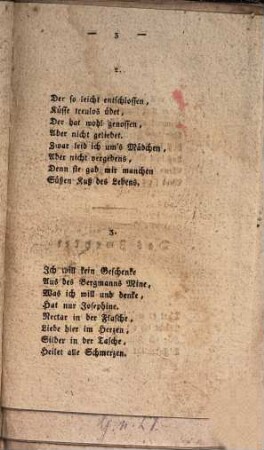 — 3 —
2.
Der so leicht entschlossen,
Küsse treulos üdet,
Der hat wohl genossen,
Aber nicht geliebet.
Zwar leid ich um's Mädchen,
Aber nicht vergebens,
Denn sie gab mir manchen
Süßen Kuß des Lebens.
3.
Ich will kein Geschenke
Aus des Bergmanns Mine,
Was ich will und denke,
Hat nur Josephine.
Nectar in der Flasche,
Liebe hier im Herzen,
Silder in der Tasche,
Heilet alle Schmerzen.